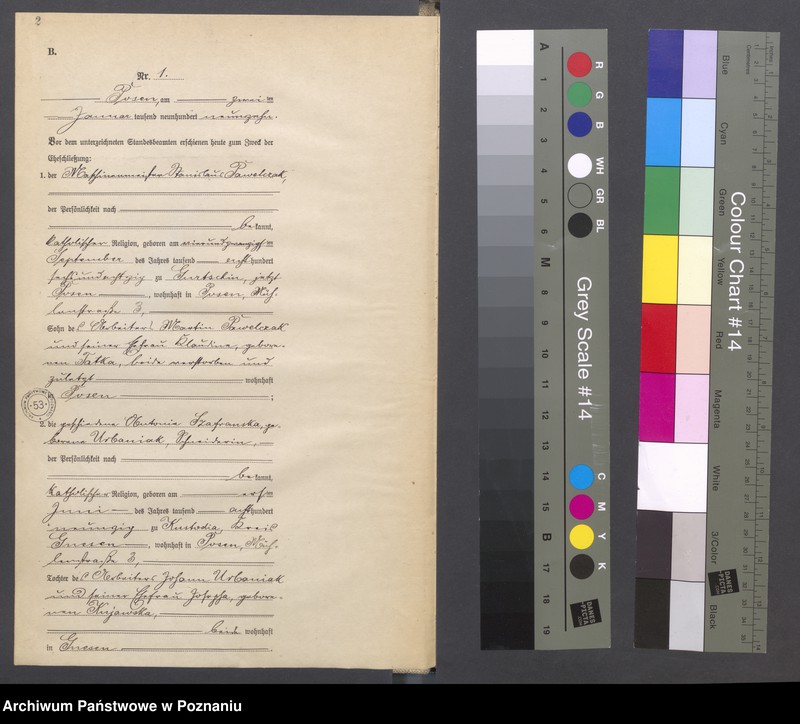 2
B.
Nr. 1.
Posen, am zwei ten
Januar tausend neunhundert neunzehn.
Vor dem unterzeichneten Standesbeamten erschienen heute zum Zweck der
Eheschließung:
1. der Maschinenmeister Stanislaus Pawelczak,
der Persönlichkeit nach
be kannt,
katholischer Religion, geboren am vierundzwanzigsten
September des Jahres tausend achthundert
sechsundachtzig zu Gurtschin, jetzt
Posen, wohnhaft in Posen, Müh-
lenstraße 3,
Sohn des Arbeiters Martin Pawelczak
und seiner Ehefrau Klaudine, gebore-
nen Tatka, beide verstorben und
zuletzt wohnhaft
Posen;
53
2. die geschiedene Antonie Szafranska, ge-
borene Urbaniak, Schneiderin,
der Persönlichkeit nach
be kannt,
katholischer Religion, geboren am ersten
Juni des Jahres tausend achthundert
neunzig zu Kustodia, Kreis
Gnesen, wohnhaft in Posen, Müh-
lenstraße 3,
Tochter des Arbeiters Johann Urbaniak
und seiner Ehefrau Josepha, gebore-
nen Kujawska,
beide wohnhaft
in Gnesen.
A 1 2 3 4 5 6 M 8 9 10 11 12 13 14 15 B 17 18 19
R G B WH GR BL
Grey Scale #14
C M Y K
DANES
PICTA
.COM
Blue Cyan Green Yellow Red Magenta White 3/Color Black
Colour Chart #14
DANES
PICTA
.COM
Inches
Centimetres
Archiwum Państwowe w Poznaniu